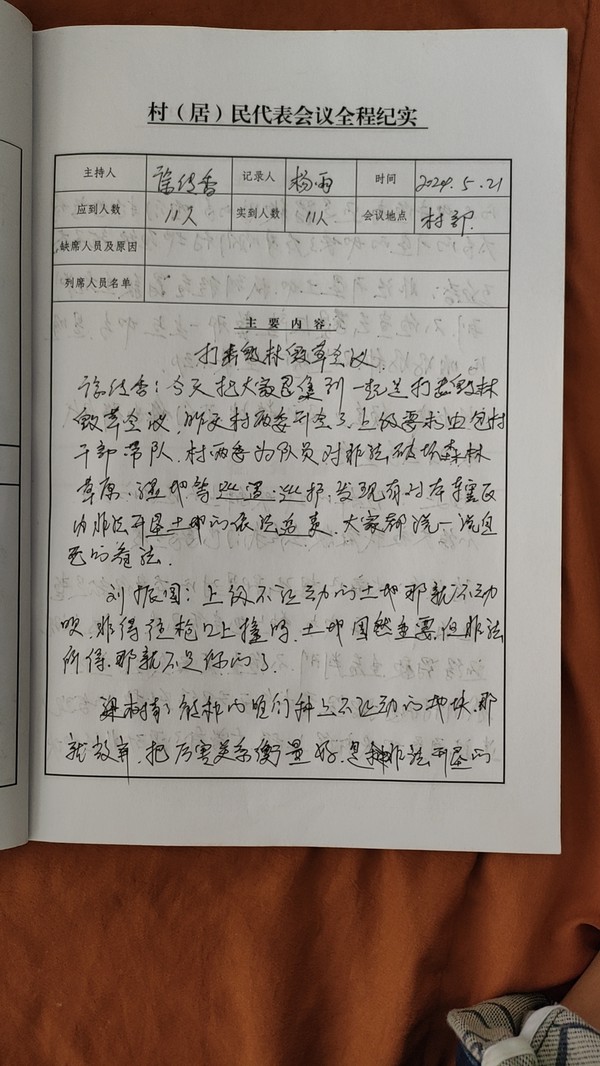 村（居）民代表会议全程纪实
主持人 徐传香 记录人 杨雨 时间 2024.5.21
应到人数 11人 实到人数 11人 会议地点 村部
缺席人员及原因
列席人员名单
主要内容
打击毁林毁草会议
徐传香：今天把大家召集到一起是打击毁林
毁草会议，昨天村两委开会了，上级要求由包村
干部带队，村两委为队员对非法破坏森林
草原、湿地等巡逻、巡护，发现有对本辖区
内非法开垦土地的依法追责，大家都说一说自
己的看法。
刘振国：上级不让动的土地那就不动
呗，非得往枪口上撞吗，土地固然重要，但非法
所得，那就不是你的了。
梁树
就放弃，把厉害关系衡量好，是非法开垦的